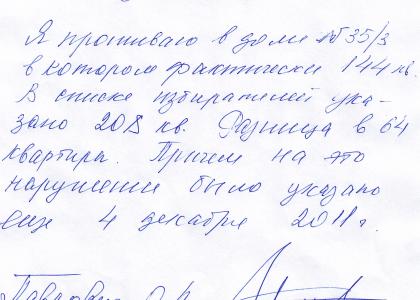 Я проживаю в доме № 35/3
в котором фактически 144 кв.
В списке избирателей ука-
зано 208 кв. Разница в 64
квартиры. Причем на это
нарушение было указано
еще 4 декабря 2011 г.